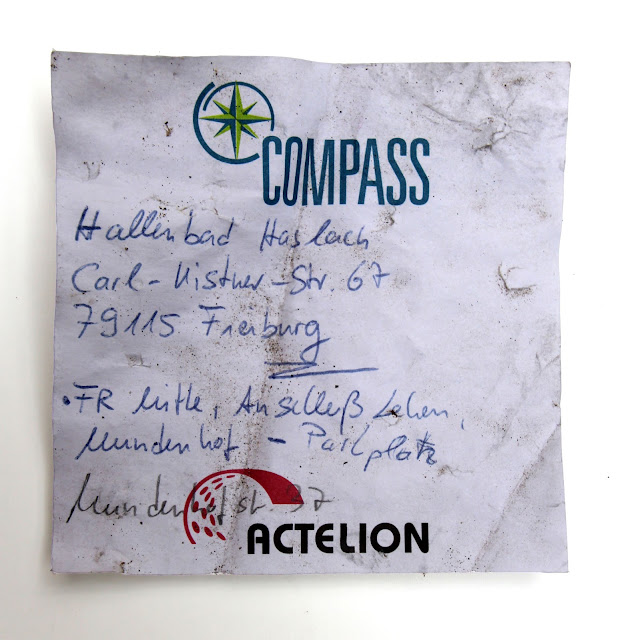 COMPASS
Hallenbad Haslach
Carl-Kistner-Str. 67
79115 Freiburg
• FR Mitte, Lehen,
Mundenhof - Parkplatz
Mundenhofstr. 37
ACTELION